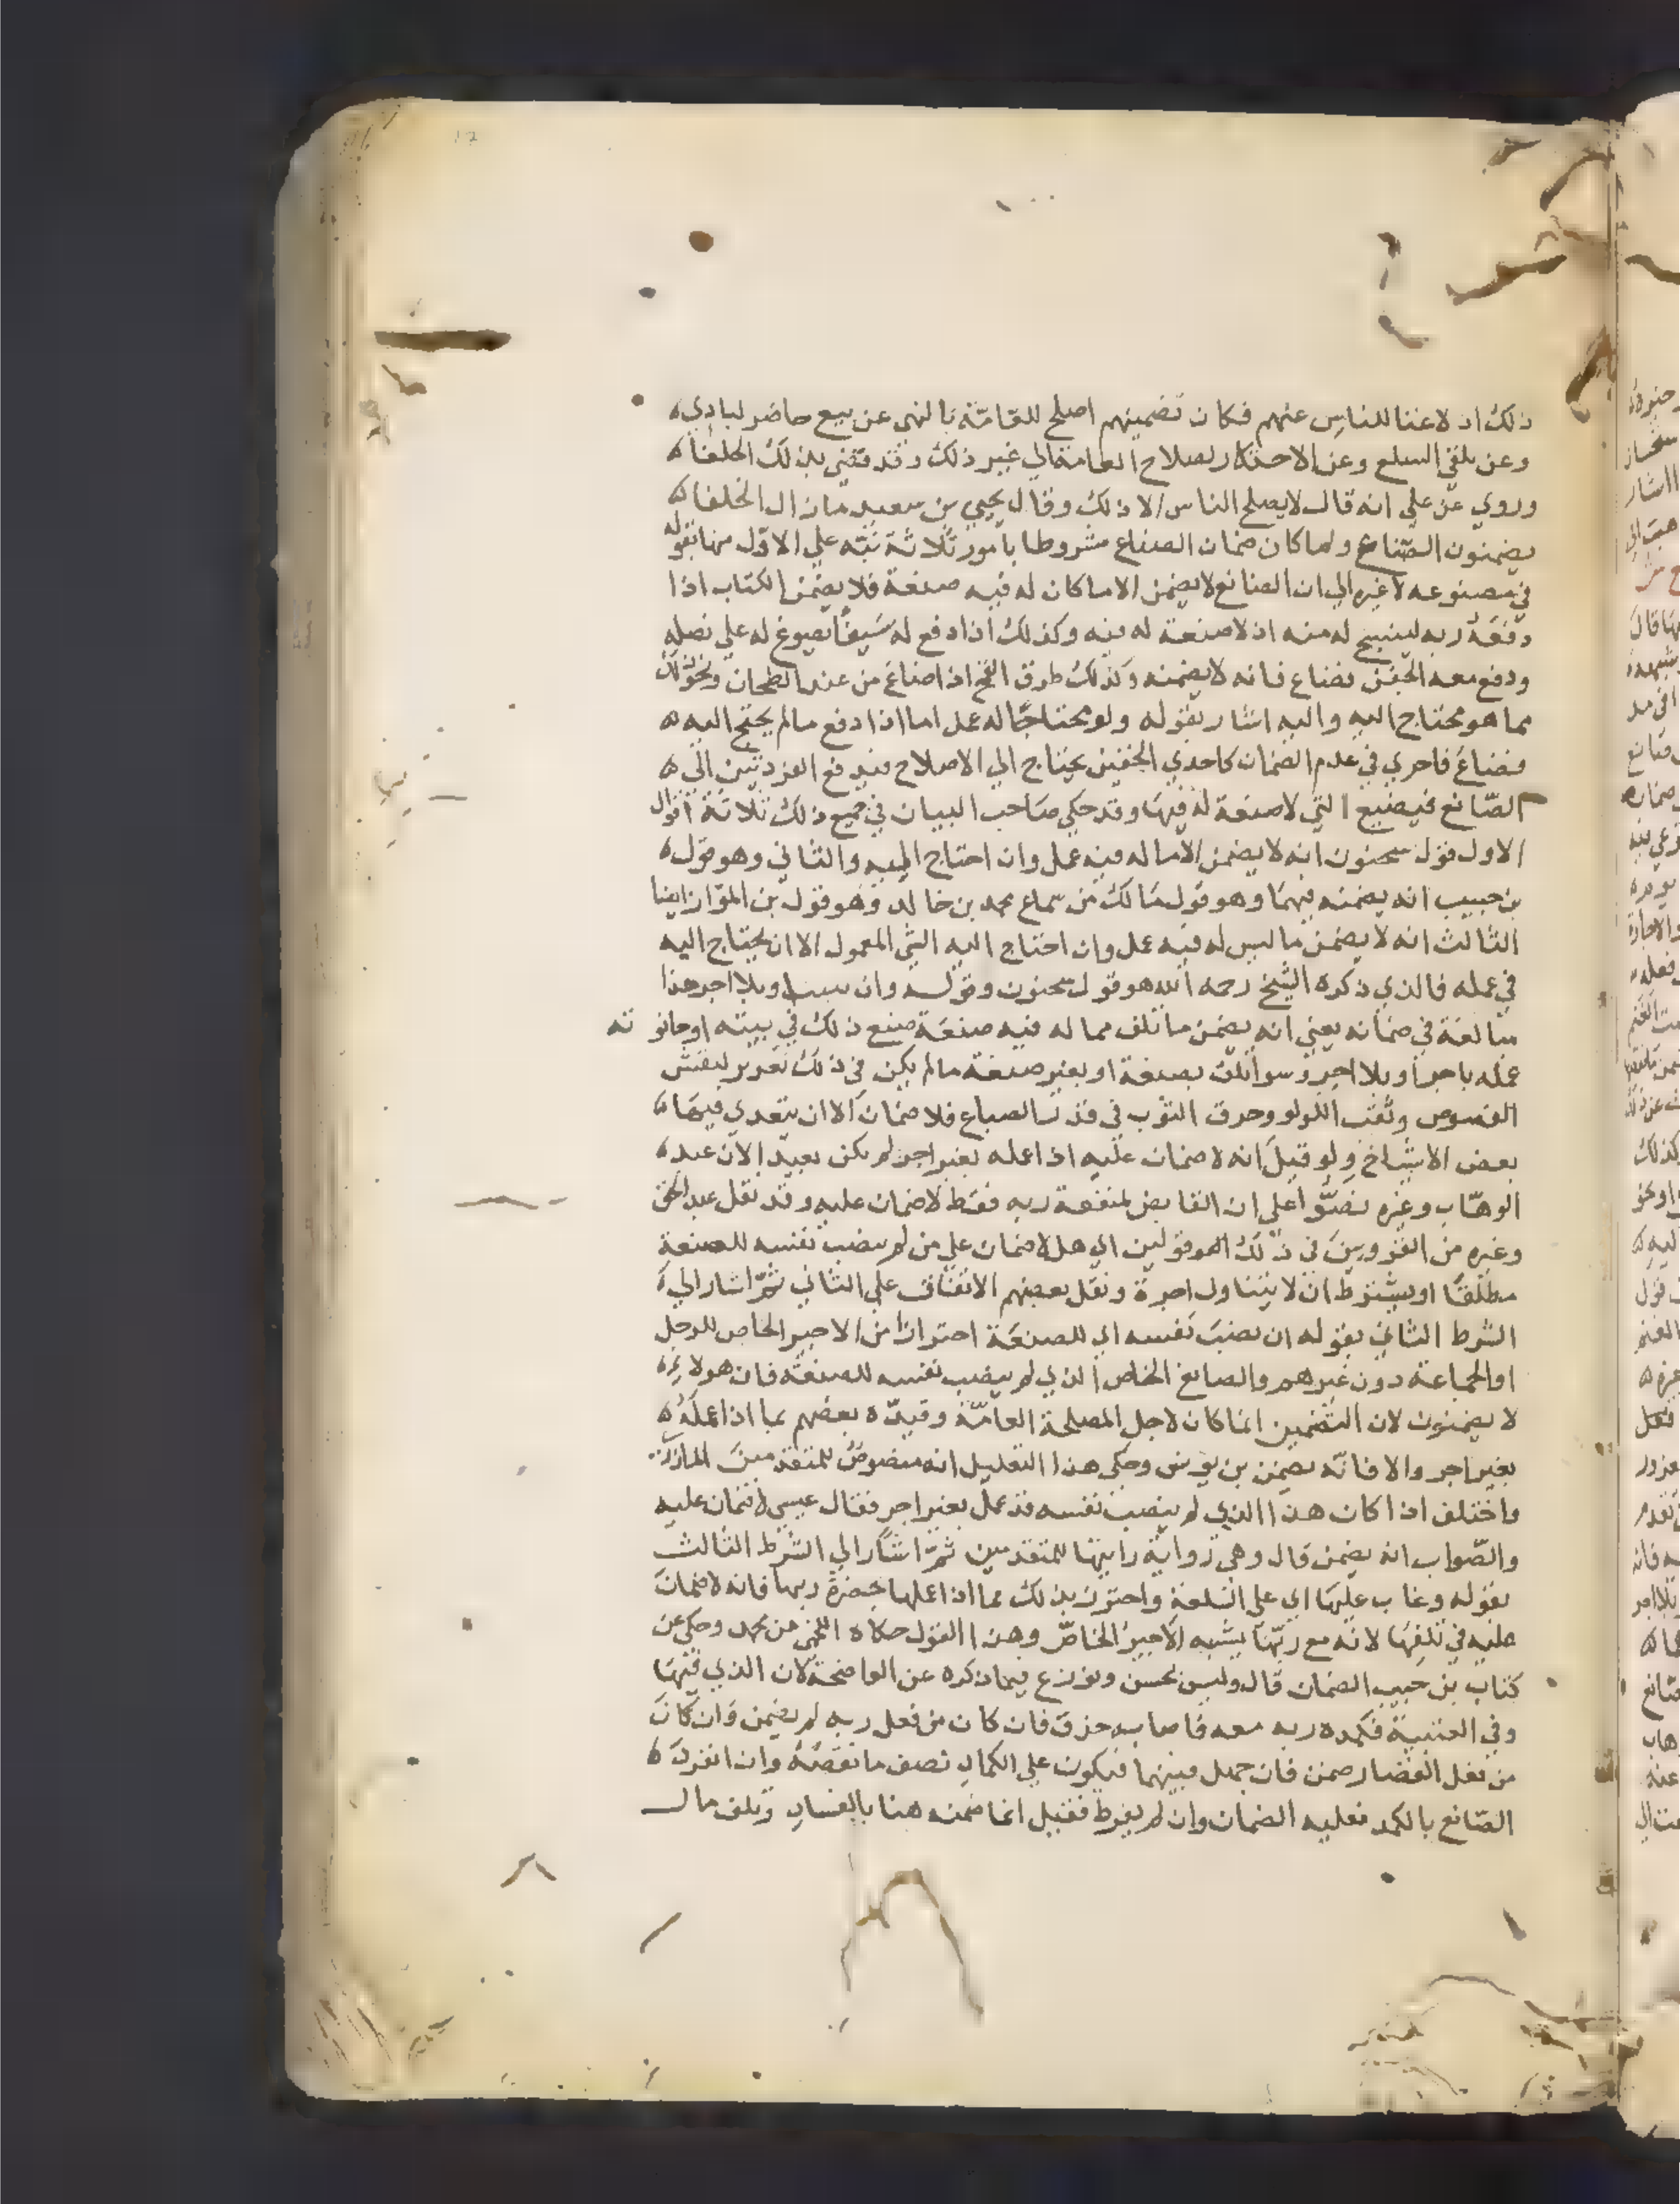 ذلك اذ لاغنا للناس عنهم فكان تضمينهم اصلح للعامة بالنهي عن بيع حاضر لبادي
وعن تلقي السلع وعن الاحتكار لصلاح العامة الي غير ذلك وقد قضي بذلك الخلفا
وروي عن علي انه قال لا يصلح الناس الا ذلك وقال يحيي بن سعيد مازال الخلفا
يضمنون الصناع ولما كان ضمان الصناع مشروطا بامور ثلاثة نبه علي الاول منها بقوله
في مصنوعه لا غيره الي ان الصانع لا يضمن الا ما كان له فيه صنعة فلا يضمن الكتاب اذا
دفعه ربه لينسخ له منه اذ لا صنعة له فيه وكذلك اذا دفع له سيفا يصوغ له علي نصله
ودفع معه الجفن فضاع فانه لا يضمنه وكذلك ظرف القمح اذا ضاع من عند الطحان ونحو ذلك
مما هو محتاج اليه واليه اشار بقوله ولو محتاجا له عمل اما اذا دفع ما لم يحتج اليه
فضاع فاحري في عدم الضمان كاحدي الخفين يحتاج الي الاصلاح فيدفع الفردتين الي
الصانع فيضيع التي لا صنعة له فيها وقد حكي صاحب البيان في جميع ذلك ثلاثة اقوال
الاول قول سحنون انه لا يضمن الا ما له فيه عمل وان احتاج اليه والثاني وهو قول
بن حبيب انه يضمنه فيهما وهو قول مالك من سماع محمد بن خالد وهو قول بن المواز ايضا
الثالث انه لا يضمن ما ليس له فيه عمل وان احتاج اليه الشي المعمول الا ان يحتاج اليه
في عمله فالذي ذكره الشيخ رحمه الله هو قول سحنون وقوله وان ببيته او بلا اجر هذا
مبالغة في ضمانه يعني انه يضمن ما تلف مما له فيه صنعة صنع ذلك في بيته او حانوته
عمله باجر او بلا اجر وسوا تلف بصنعة او بغير صنعة ما لم يكن في ذلك تغرير لنقش
الفصوص وثقب اللولو وحرق الثوب في قدر الصباغ فلا ضمان الا ان يتعدي فيها
بعض الاشياخ ولو قيل انه لا ضمان عليه اذا عمله بغير اجر لم يكن بعيد الان عبد
الوهاب وغيره نصوا علي ان القابض لمنفعة ربه فقط لا ضمان عليه وقد نقل عبد الحق
وغيره من القرويين في ذلك قولين اي هل لا ضمان علي من لم ينصب نفسه للصنعة
مطلقا او يشترط ان لا يتناول اجرة ونقل بعضهم الاتفاق علي الثاني ثم اشار الي
الشرط الثاني بقوله ان نصب نفسه اي للصنعة احترازا من الاجير الخاص للرجل
او الجماعة دون غيرهم والصانع الخاص الذي لم ينصب نفسه للصنعة فان هولا
لا يضمنون لان التضمين انما كان لاجل المصلحة العامة وقيده بعضهم بما اذا عمله
بغير اجر والا فانه يضمن بن يونس وحكي هذا التعليل انه منصوص للمتقدمين المازري
واختلف اذا كان هذا الذي لم ينصب نفسه قد عمل بغير اجر فقال عيسي لا ضمان عليه
والصواب انه يضمن قال وهي رواية رايتها للمتقدمين ثم اشار الي الشرط الثالث
بقوله وغاب عليها اي علي السلعة واحترز بذلك مما اذا عملها بحضرة ربها فانه لا ضمان
عليه في تلفها لانه مع ربها يشبه الاجير الخاص وهذا القول حكاه اللخمي عن محمد وحكي عن
كتاب بن حبيب الضمان قال وليس بحسن ونوزع فيما ذكره عن الواضحة لان الذي فيها
وفي العتبية فكمده ربه معه فاصابه حرق فان كان من فعل ربه لم يضمن وان كان
من فعل القصار ضمن فان جهل فبينهما فيكون علي الكماد نصف ما نقصه وان انفرد
الصانع بالكمد فعليه الضمان وان لم يفرط فقيل انما ضمنه هنا بالفساد وتلف مال